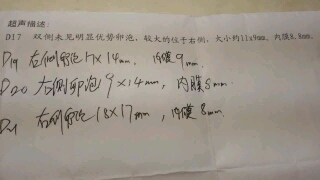 超声描述:
D17 双侧未见明显优势卵泡，较大的位于右侧，大小约11x9mm，内膜8.8mm。
D19 右侧卵泡17×14mm，内膜9mm.
D20 右侧卵泡19×14mm，内膜8mm.
D21 右侧卵泡18×17mm，内膜8mm.